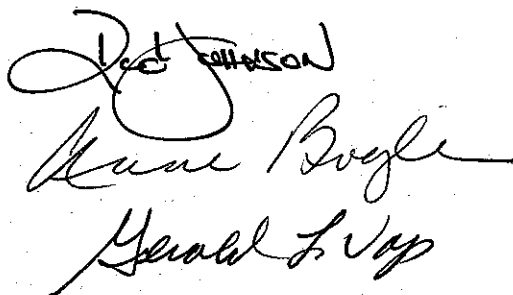 Rod Johnson
Anne Bogle
Gerald L. Vop